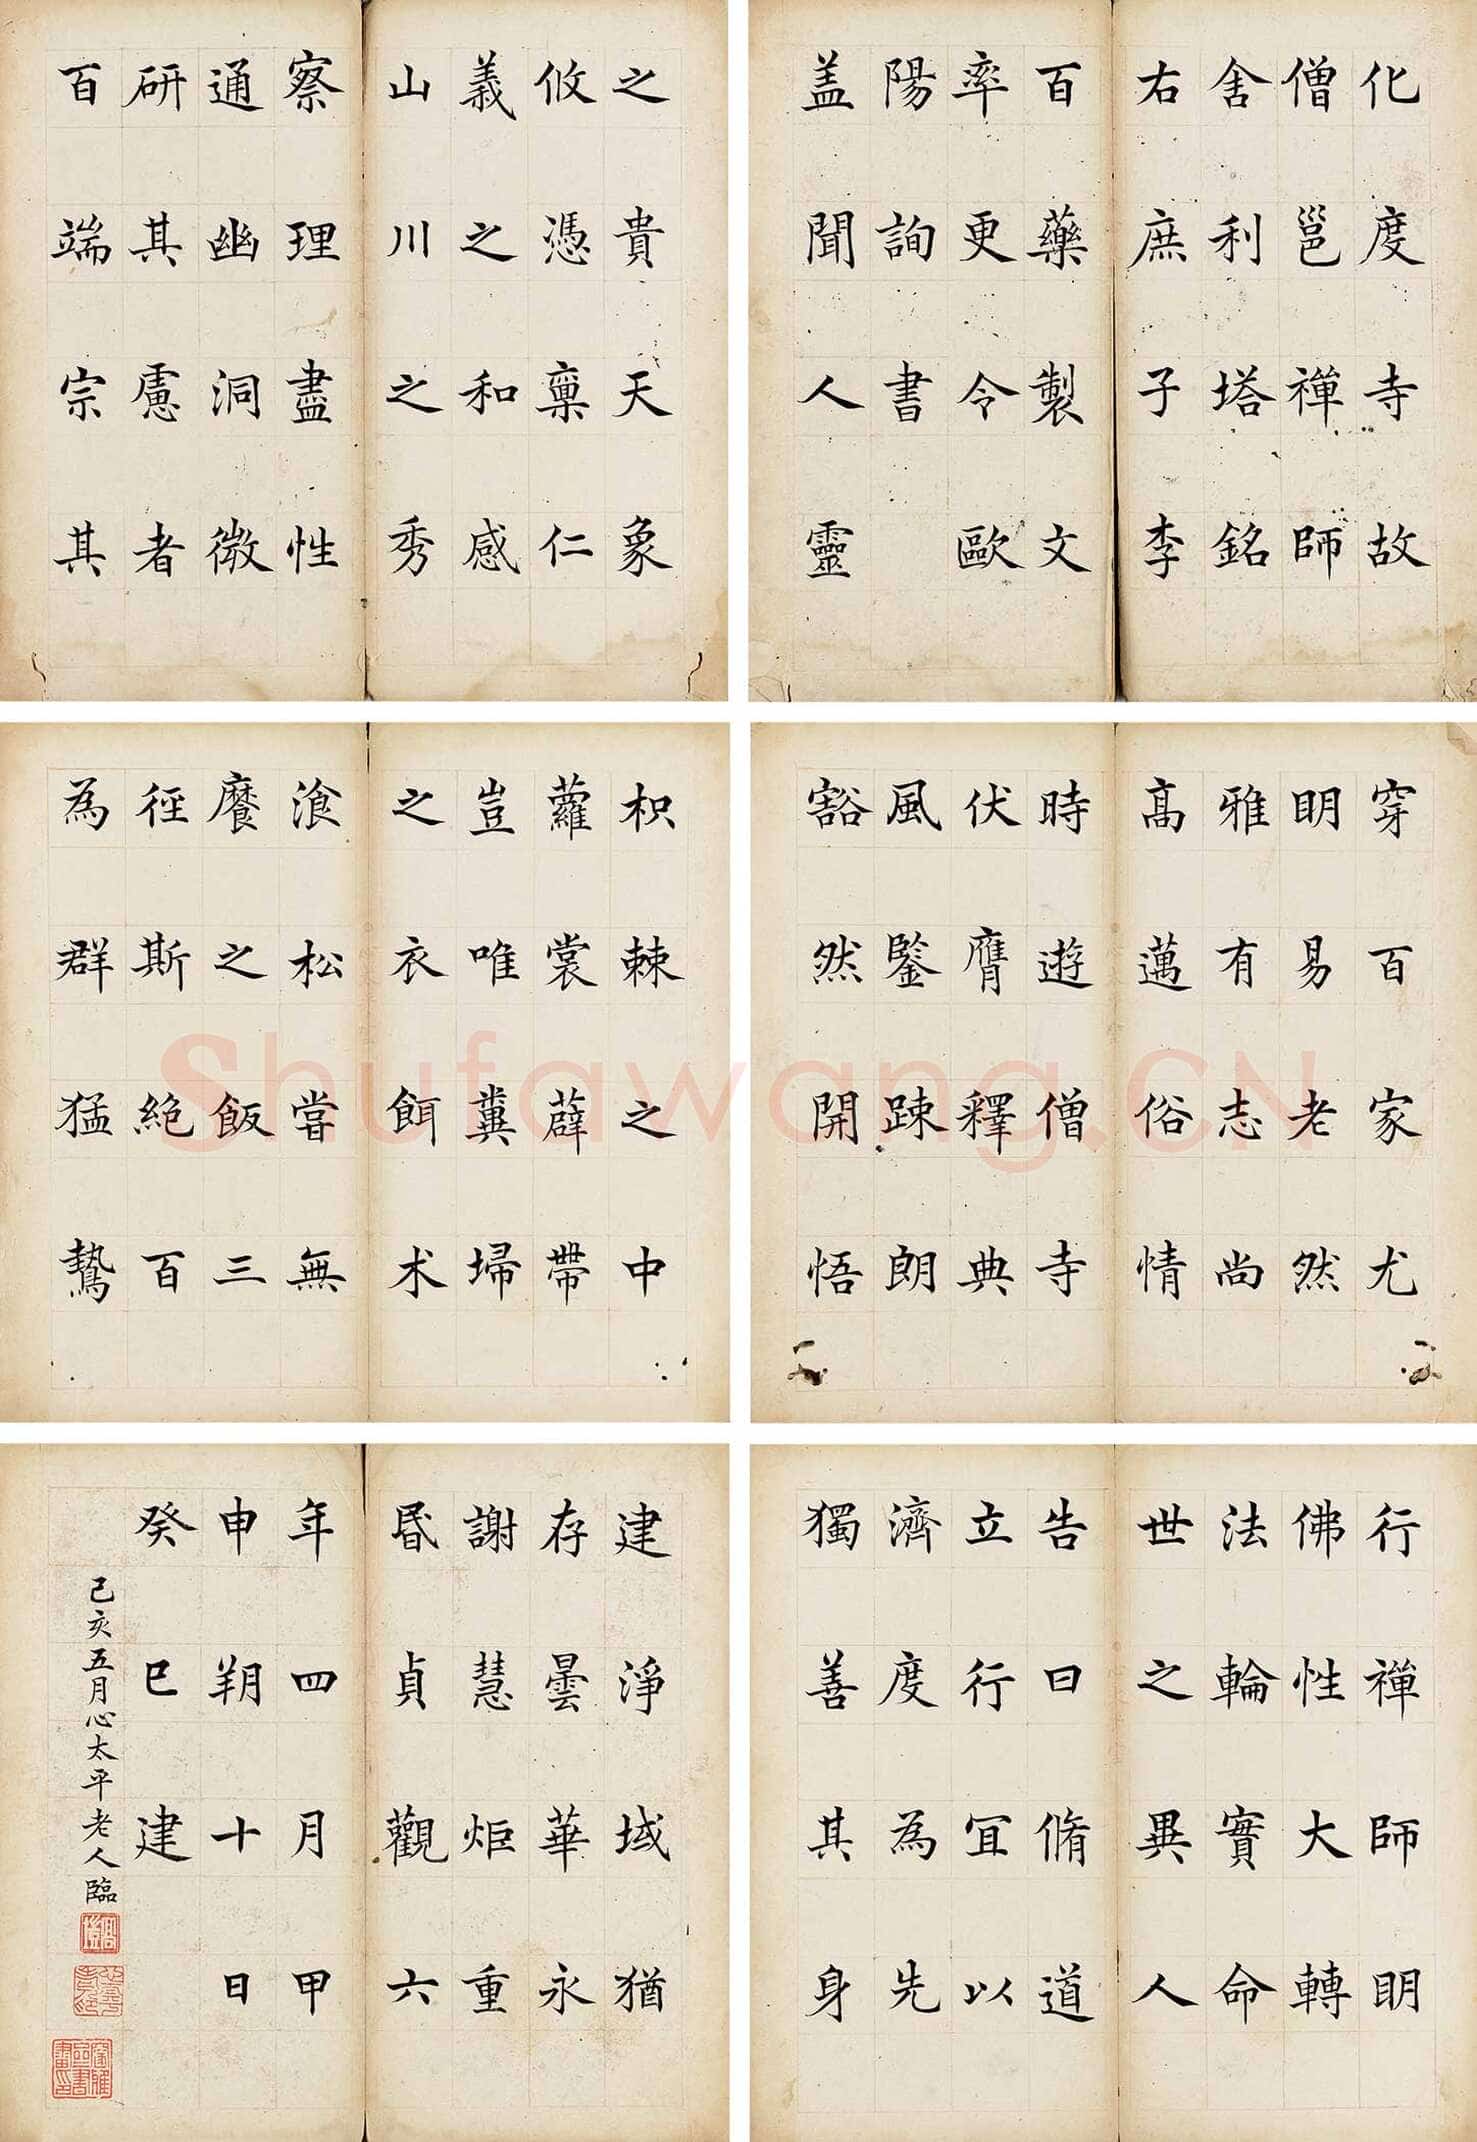 化度寺故
僧邕禪師
舍利塔銘
右庶子李
百藥製文
率更令歐
陽詢書
盖聞人靈
之貴天象
攸憑稟仁
義之和感
山川之秀
察理盡性
通幽洞微
研其慮者
百端宗其
穿百家尤
明易老然
雅有志尚
高邁俗情
時遊僧寺
伏膺釋典
風鑒疎朗
豁然開悟
枳棘之中
蘿裳薜帶
豈唯糞埽
之衣餌朮
飡松嘗無
之飯三
徑斯絶百
為群猛鷙
行禪師明
佛性大轉
法輪實命
世之異人
告曰脩道
立行冝以
濟度為先
獨善其身
建淨域猶
存曇華永
謝慧炬重
昬貞觀六
年四月甲
申朔十日
癸巳建
己亥五月心太平老人臨
Shufawang.CN